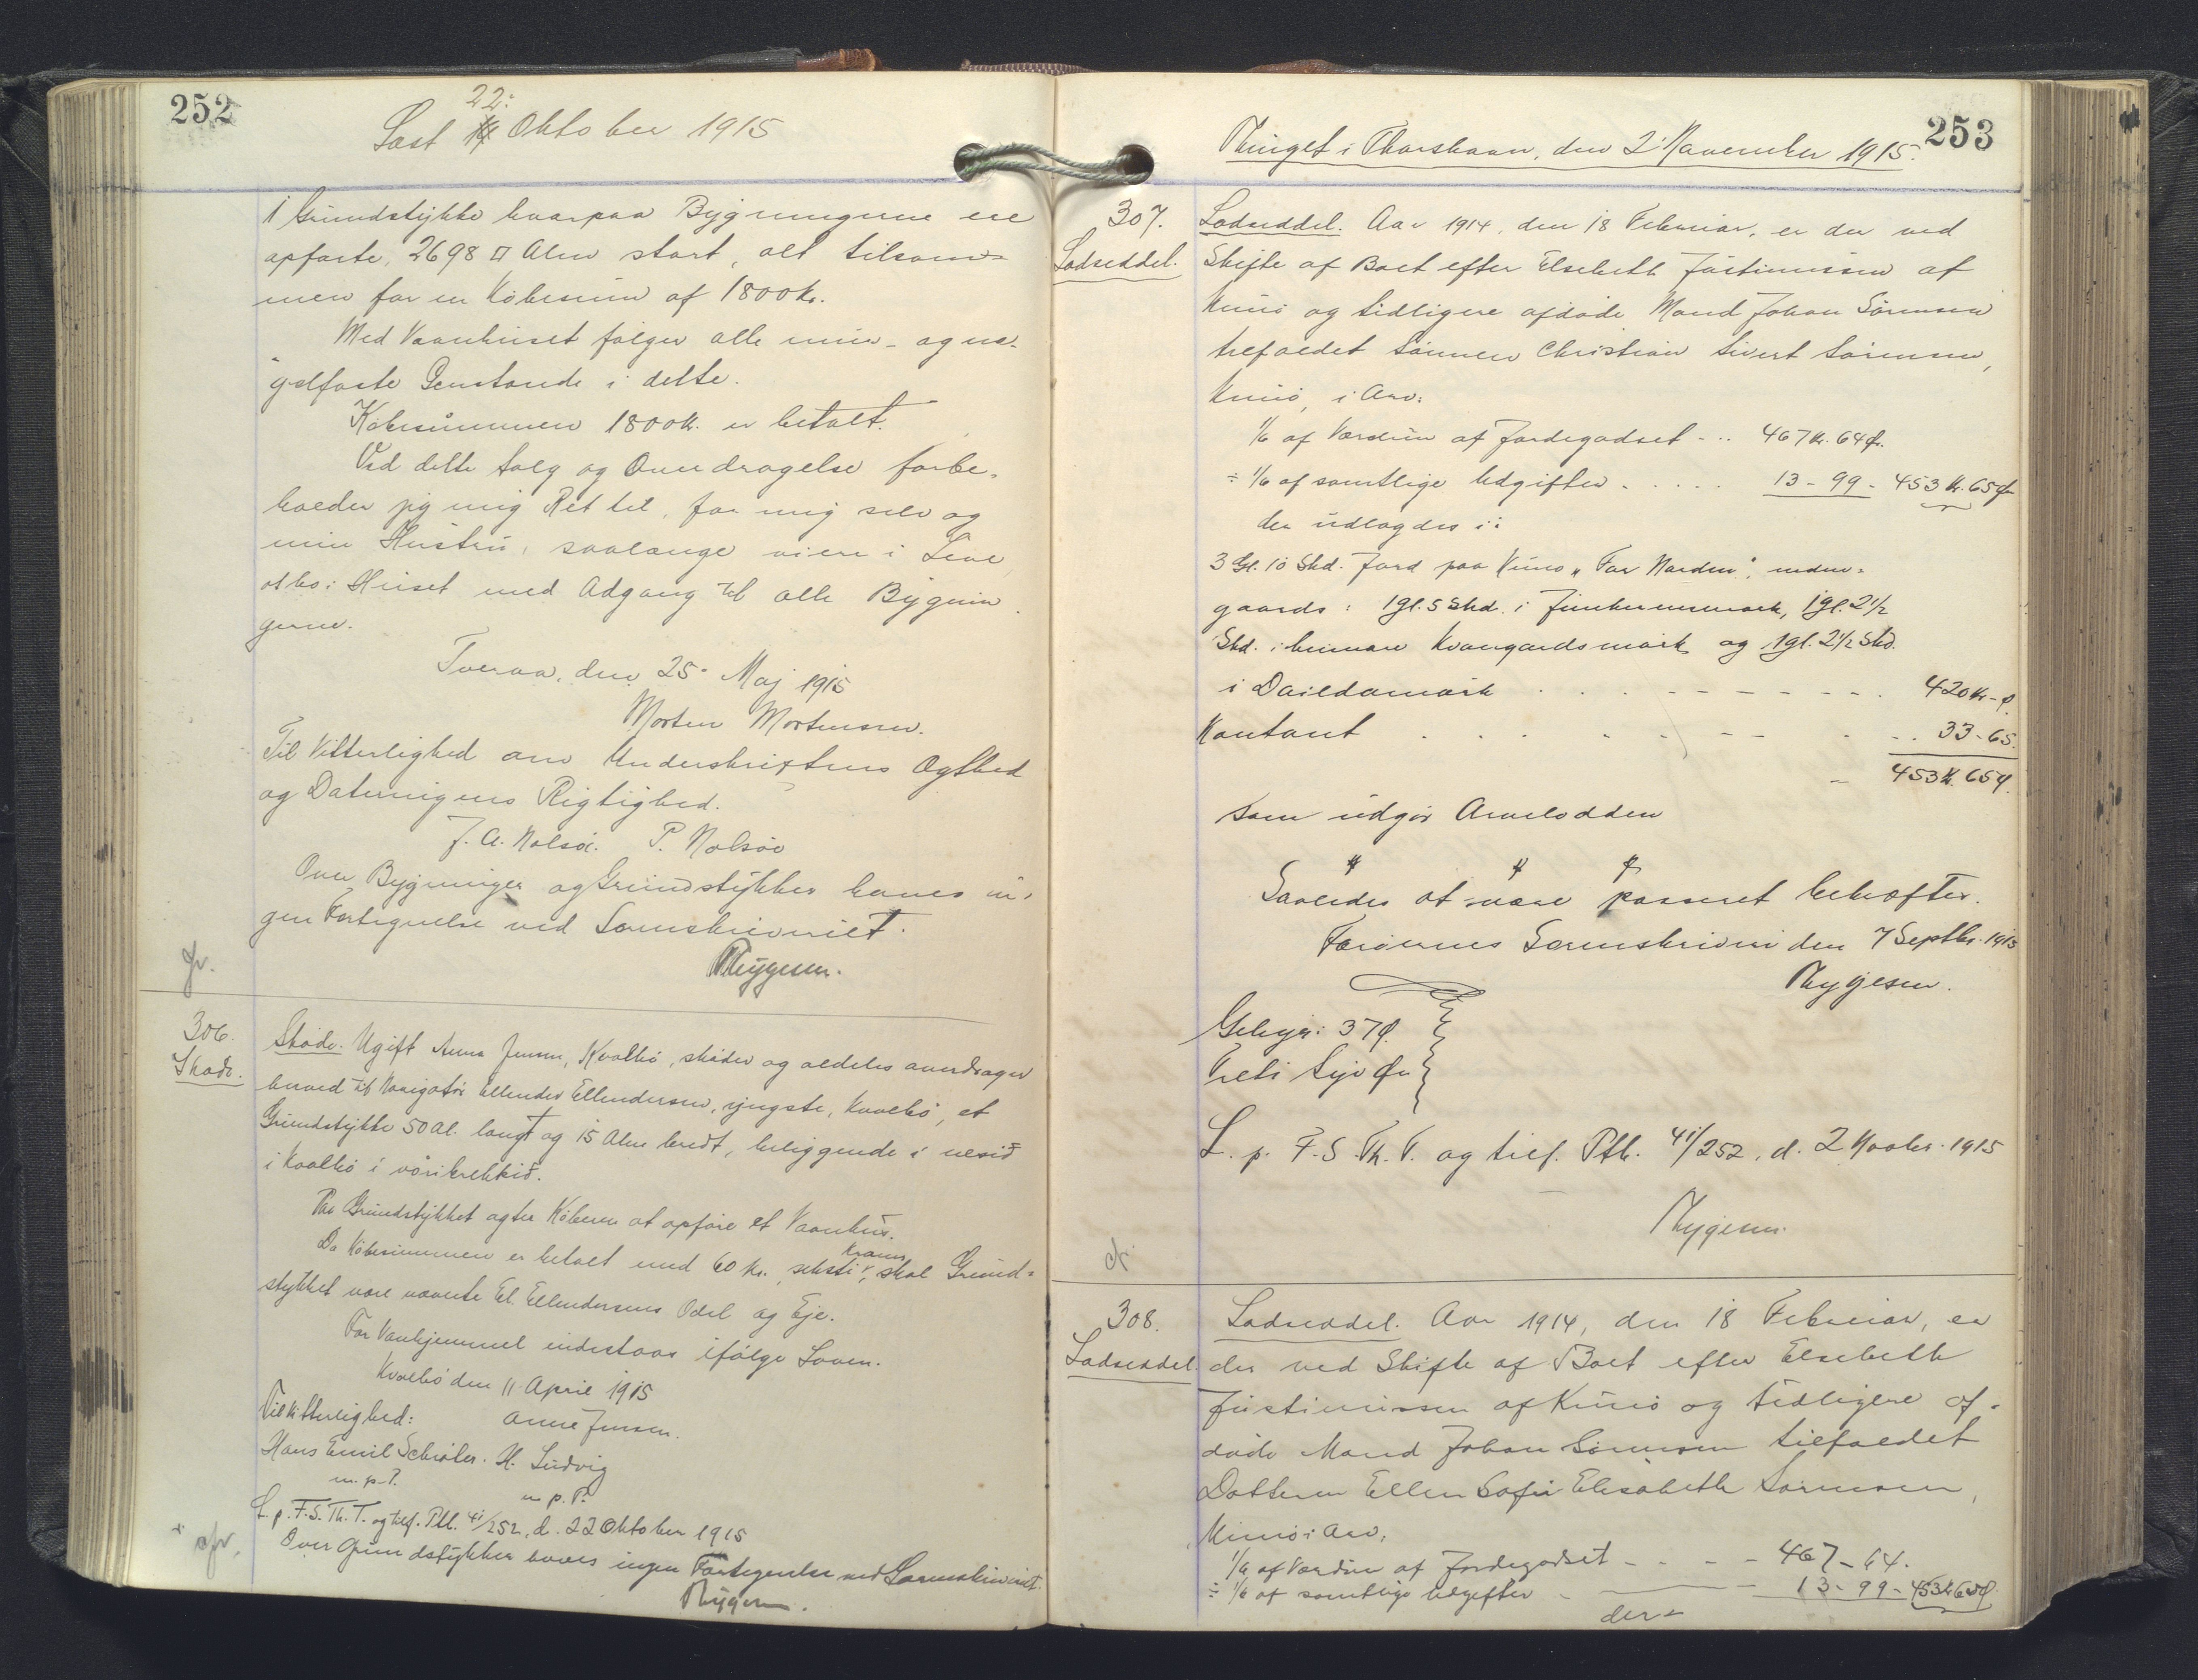 252
Læst 22. Oktober 1915
1 Grundstykke hvorpaa Bygningerne ere
opførte, 2698 □ Alen stort, alt tilsam=
men for en Købesum af 1800 Kr.
Med Vaanhuset følger alle mur- og na-
gelfaste Genstande i dette.
Købesummen 1800 Kr. er betalt.
Ved dette Salg og Overdragelse forbe-
holder jeg mig Ret til, for mig selv og
min Hustru, saalænge vi ere i Live
at bo i Huset med Adgang til alle Bygnin
gerne.
Tveraa, den 25' Maj 1915
Morten Mortensen.
Til Vitterlighed om Underskriftens Ægthed
og Dateringens Rigtighed.
J. A. Nolsøe. P. Nolsøe
Over Bygninger og Grundstykker haves in-
gen Fortegnelse ved Sorenskriveriet.
Thygesen.
306.
Skøde.
Skøde. Ugift Anna Jensen, Kvalbø, skøder og aldeles overdrager
herved til Navigatør Ellendur Ellendersen, yngste, Kvalbø, et
Grundstykke 50 Al. langt og 15 Alen bredt, beliggende i nesið
i Kvalbø i vørikrekkið.
Paa Grundstykket agter Køberen at opføre et Vaanhus.
Da Købesummen er betalt med 60 Kr., seksti Kroner, skal Grund=
stykket være nævnte El. Ellendersens Odel og Eje.
For Vanhjemmel indestaar ifølge Loven.
Kvalbø den 11 April 1915
Til Vitterlighed: Anne Jensen.
Hans Emil Schrøter. H. Ludvig
m. p. ?. m p. P.
L. p. F. S. Th. T. og tilf. Ptb. 41/252, d. 22 Oktober 1915
Over Grundstykker haves ingen Fortegnelse ved Sorenskriveriet.
Thygesen.
253
Thinget i Thorshavn, den 2' November 1915.
307.
Lodseddel.
Lodseddel. Aar 1914, den 18 Februar, er der ved
Skifte af Boet efter Elsebeth Justinussen af
Kunø og tidligere afdøde Mand Johan Sørensen
tilfaldet Sønnen Christian Sivert Sørensen,
Kunø, i Arv:
1/6 af Værdien af Jordegodset - .. 467 Kr. 64 Ø.
÷ 1/6 af samtlige Udgifter . . . . . 13 - 99 - 453 Kr. 65 Ø
der udlagdes i:
3 Gl. 10 Skd. Jord paa Kunø „Før Norden", inden=
gaards: 1 gl. 5 Skd. i , 1 gl. 2½
Skd. i heimare Kvangardsmørk og 1 gl. 2½ Skd.
i . . . - - - - - . 420 Kr - Ø
Kontant . . . . . - - . - . . 33 - 65.
453 Kr. 65 Ø.
som udgør Arvelodden
Saaledes at være passeret bekræftes.
Færøernes Sorenskriveri den 7 Septbr. 1915
Thygesen.
Gebyr: 37 Ø.
Treti Syv Ør
L. p. F. S. Th. T. og tilf. Ptb. 41/252, d. 2 Novbr. 1915
Thygesen.
308.
Lodseddel.
Lodseddel. Aar 1914, den 18 Februar, er
der ved Skifte af Boet efter Elsebeth
Justinussen af Kunø og tidligere af-
døde Mand Johan Sørensen tilfaldet
Datteren Ellen Sofie Elisabeth Sørensen,
Kunø i Arv,
1/6 af Værdien af Jordegodset - - - - 467 - 64.
÷ 1/6 af samtlige Udgifter - 13 - 99 - 453 Kr 65 Ø.
der=